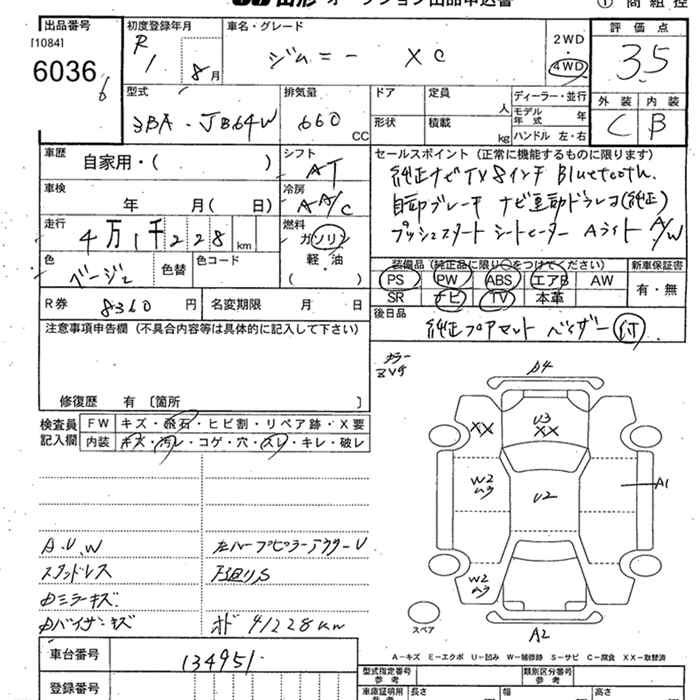 山形 オークション出品申込書 ① 商組控
出品番号 初度登録年月 車名・グレード 評価点
[1084] R1 8月 ジムニー XC 2WD 4WD 3.5
6036
6
型式 排気量 ドア 定員 人 ディーラー・並行 外装 内装
3BA-JB64W 660 CC 形状 積載 kg モデル年式 年 C B
ハンドル 左・右
車歴 自家用・( ) シフト AT セールスポイント(正常に機能するものに限ります)
純正ナビTV 8インチ Bluetooth.
車検 年 月( 日) 冷房 AA/C 自動ブレーキ ナビ連動ドラレコ(純正)
走行 4万1千228km 燃料 ガソリン プッシュスタート シートヒーター Aライト A/W
色 ベージュ 色替 色コード 軽・油 ( )
装備品(純正品に限り○をつけてください) 新車保証書
PS PW ABS エアB AW 有・無
SR ナビ TV 本革
R券 8360円 名変期限 月 日 後日品
純正フロアマット バイザー付
注意事項申告欄(不具合内容等は具体的に記入して下さい)
カラー
ZVG
修復歴 有〔箇所
検査員記入欄 FW キズ・飛石・ヒビ割・リペア跡・X要
内装 キズ・汚レ・コゲ・穴・スレ・キレ・破レ
A4
XX U3
XX
W2 U2 A1
W2
A2
スペア
A.U.W 左ルーフピラーアウターU
スタンドレス 下廻りS
Dミラーキズ
Dバイザーキズ オド 41228km
A-キズ E-エクボ U-凹み W-補修跡 S-サビ C-腐食 XX-取替済
車台番号 134951. 型式指定番号 参考 類別区分番号 参考
登録番号 車庫証明用 参考 長さ 幅 高さ